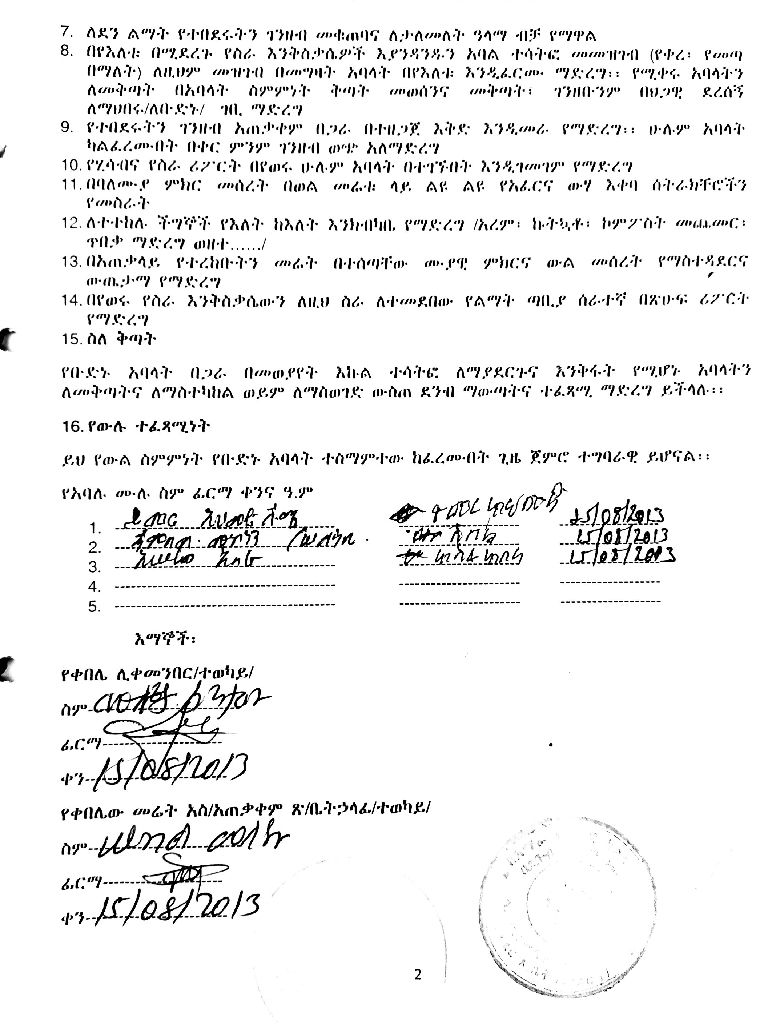 7. ለደን ልማት የተበደሩትን ገንዘብ መቆጠባና ለታለመለት ዓላማ ብቻ የማዋል
8. በየእለቱ በሚደረጉ የስራ እንቅስቃሴዎች እያንዳንዱን አባል ተሳትፎ መመዝገብ (የቀረ፣ የመጣ
በማለት) ለዚህም መዝገብ በመግዛት አባላት በየእለቱ እንዲፈርሙ ማድረግ፡፡ የሚቀሩ አባላትን
ለመቅጣት በአባላት ስምምነት ቅጣት መወሰንና መቅጣት፣ ገንዘቡንም በህጋዊ ደረሰኝ
ለማህበሩ/ለቡድኑ/ ገቢ ማድረግ
9. የተበደሩትን ገንዘብ አጠቃቀም በጋራ በተዘጋጀ እቅድ እንዲመራ የማድረግ፡፡ ሁሉም አባላት
ካልፈረሙበት በቀር ምንም ገንዘብ ወጭ አለማድረግ
10. የሂሳብና የስራ ሪፖርት በየወሩ ሁሉም አባላት በተገኙበት እንዲገመገም የማድረግ
11. በባለሙያ ምክር መሰረት በወል መሬቱ ላይ ልዩ ልዩ የአፈርና ውሃ እቀባ ስትራክቸሮችን
የመስራት
12. ለተተከሉ ችግኞች የእለት ከእለት እንክብካቤ የማድረግ /አረም፣ ኩትኳቶ፣ ኮምፖስት መጨመር፣
ጥበቃ ማድረግ ወዘተ....../
13. በአጠቃላይ የተረከቡትን መሬት በተሰጣቸው ሙያዊ ምክርና ውል መሰረት የማስተዳደርና
ውጤታማ የማድረግ
14. በየወሩ የስራ እንቅስቃሴውን ለዚህ ስራ ለተመደበው የልማት ጣቢያ ሰራተኛ በጽሁፍ ሪፖርት
የማድረግ
15. ስለ ቅጣት
የቡድኑ አባላት በጋራ በመወያየት እኩል ተሳትፎ ለማያደርጉና እንቅፋት የሚሆኑ አባላትን
ለመቅጣትና ለማስተካከል ወይም ለማስወገድ ውስጠ ደንብ ማውጣትና ተፈጻሚ ማድረግ ይችላሉ፡፡
16. የውሉ ተፈጻሚነት
ይህ የውል ስምምነት የቡድኑ አባላት ተስማምተው ከፈረሙበት ጊዜ ጀምሮ ተግባራዊ ይሆናል፡፡
የአባሉ ሙሉ ስም ፊርማ ቀንና ዓ.ም
1. 25/08/2013
2. 15/08/2013
3. 15/08/2013
4.
5.
እማኞች፡
የቀበሌ ሊቀመንበር/ተወካይ/
ስም
ፊርማ
ቀን 15/08/2013
የቀበሌው መሬት አስ/አጠቃቀም ጽ/ቤት ኃላፊ/ተወካይ/
ስም
ፊርማ
ቀን 15/08/2013
2